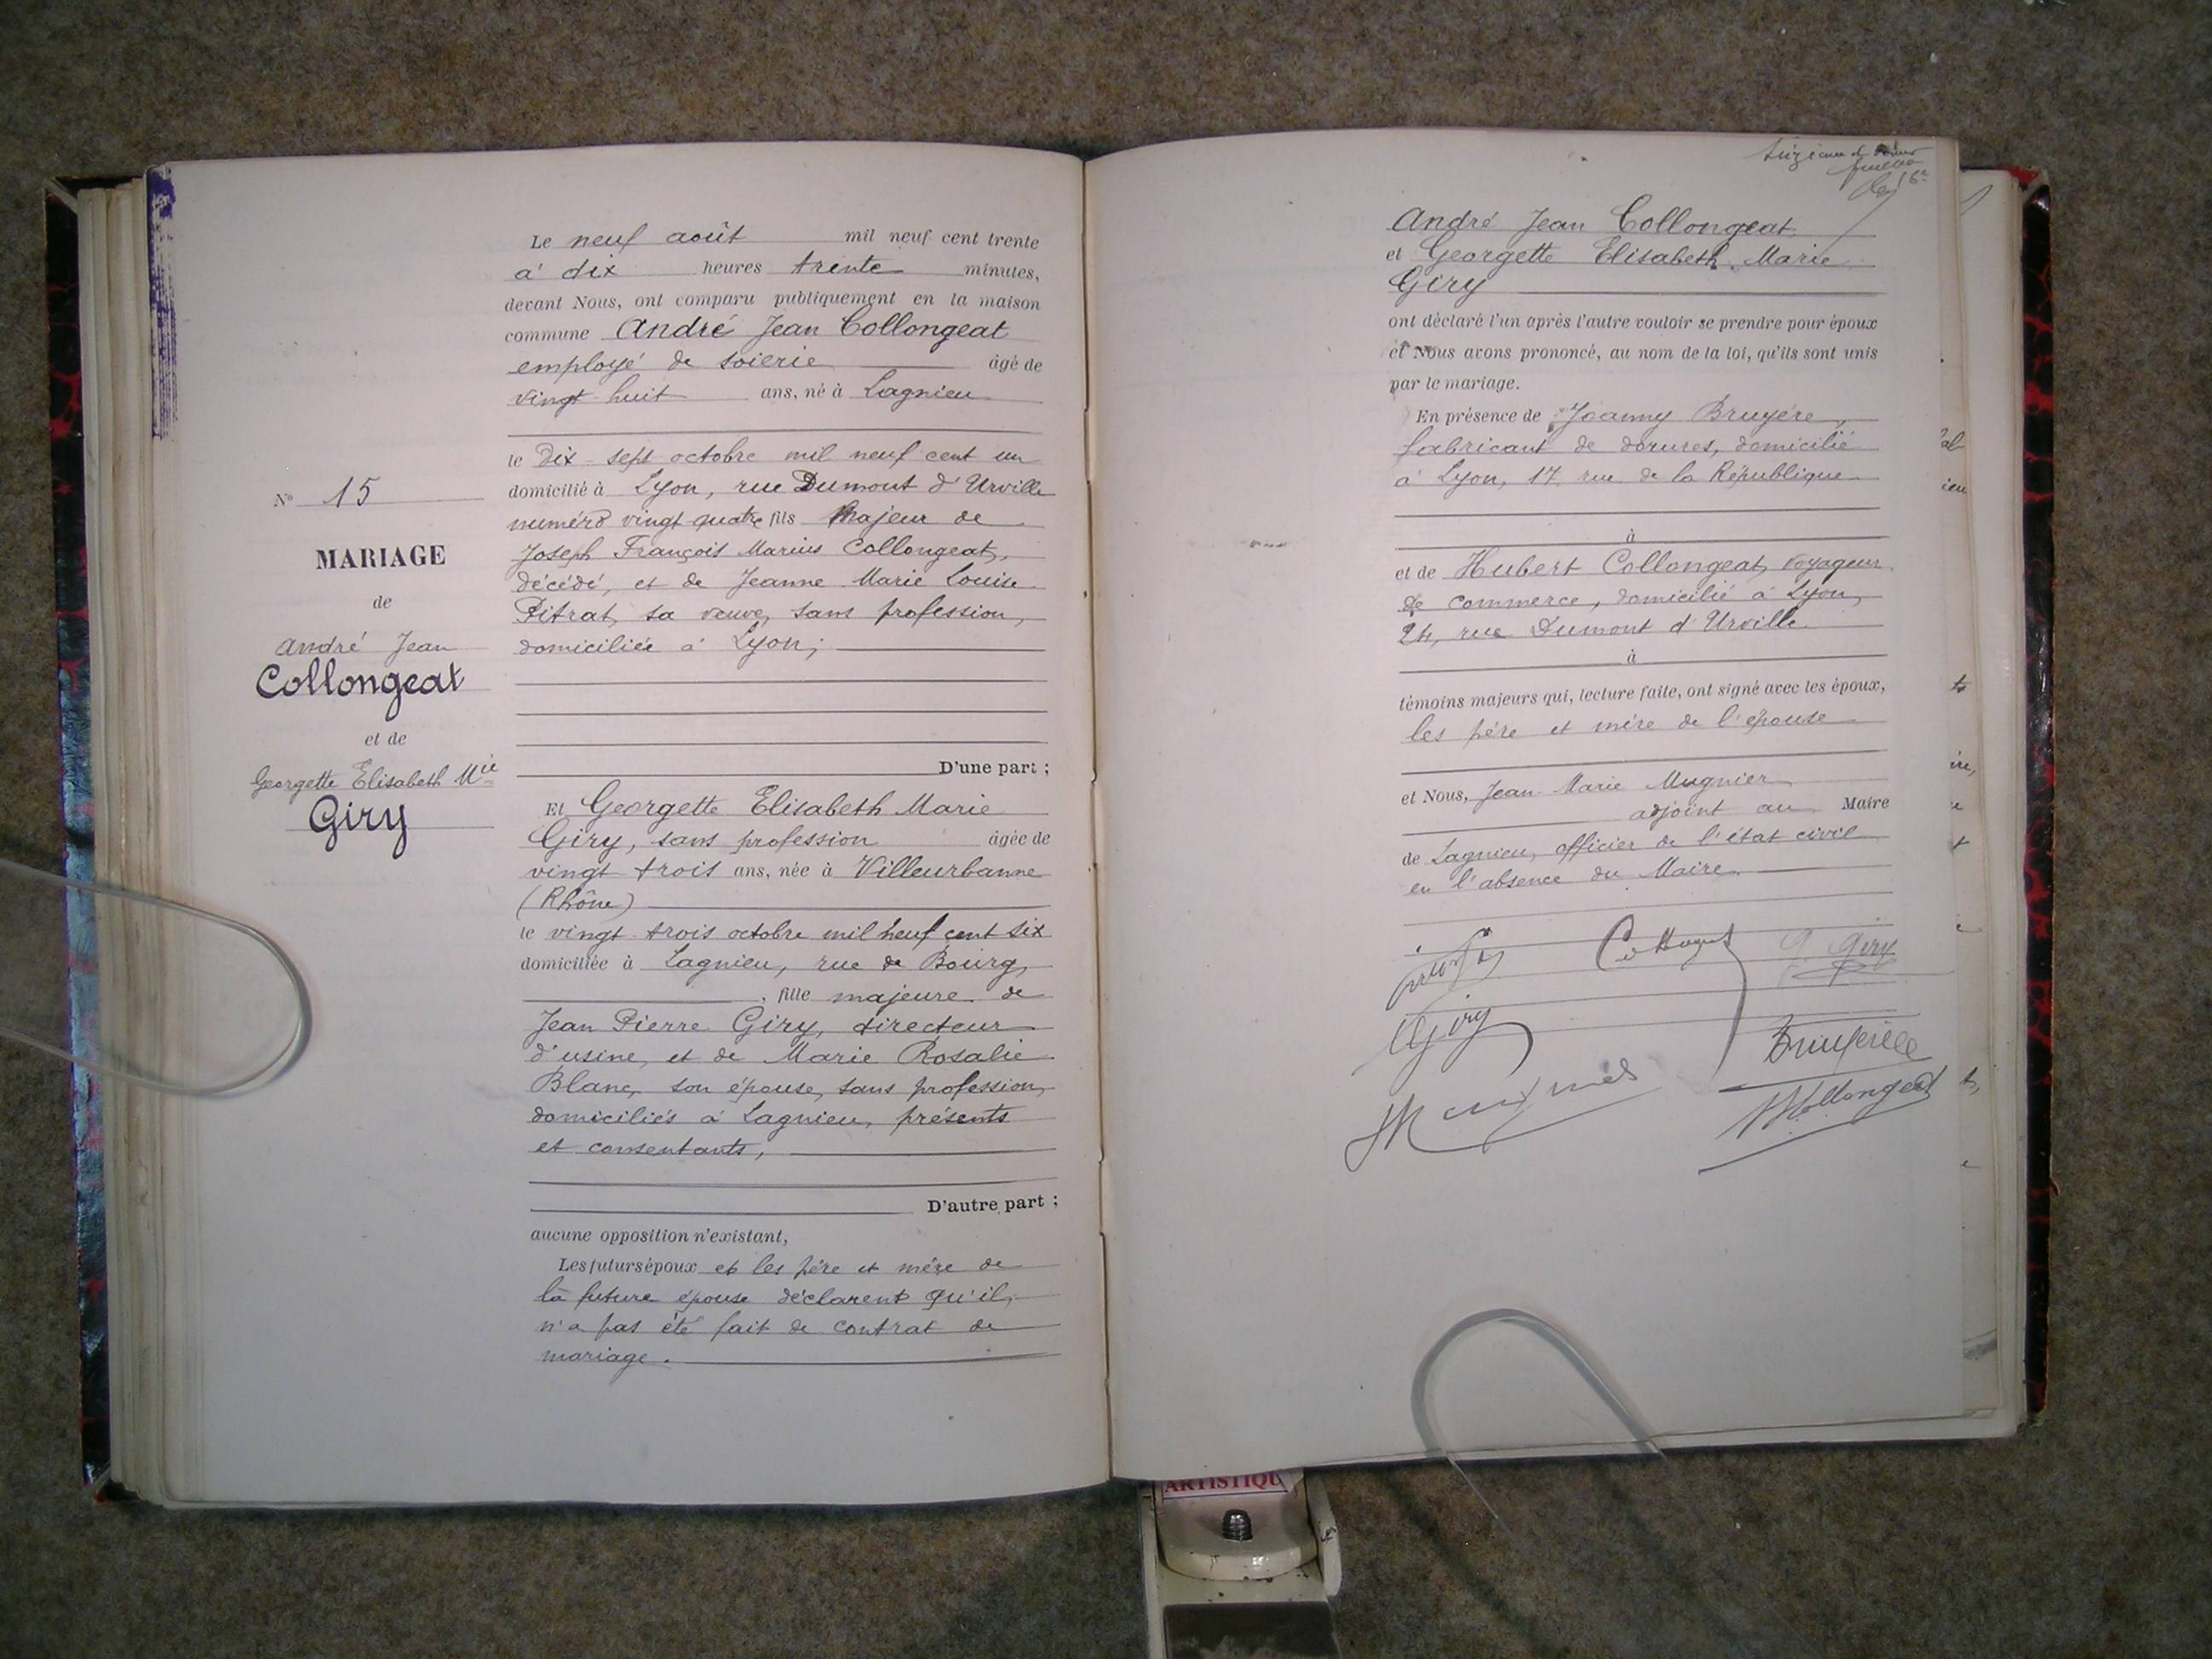 Le neuf août mil neuf cent trente
à dix heures trente minutes,
devant Nous, ont comparu publiquement en la maison
commune André Jean Collongeat
employé de soierie âgé de
vingt-huit ans, né à Lagnieu
le dix-sept octobre mil neuf cent un
domicilié à Lyon, rue Dumont d'Urville
numéro vingt quatre fils majeur de
Joseph François Marius Collongeat,
décédé, et de Jeanne Marie Louise
Pitrat, sa veuve, sans profession,
domiciliée à Lyon;
D'une part ;
Et Georgette Elisabeth Marie
Giry, sans profession âgée de
vingt trois ans, née à Villeurbanne
(Rhône)
le vingt-trois octobre mil neuf cent six
domiciliée à Lagnieu, rue de Bourg,
, fille majeure de
Jean Pierre Giry, directeur
d'usine, et de Marie Rosalie
Blanc, son épouse, sans profession,
domiciliés à Lagnieu, présents
et consentants,
D'autre part ;
aucune opposition n'existant,
Les futurs époux et les père et mère de
la future épouse déclarent qu'il
n'a pas été fait de contrat de
mariage.
N° 15
MARIAGE
de
André Jean
Collongeat
et de
Georgette Elisabeth Mie
Giry
André Jean Collongeat
et Georgette Elisabeth Marie
Giry
ont déclaré l'un après l'autre vouloir se prendre pour époux
et Nous avons prononcé, au nom de la loi, qu'ils sont unis
par le mariage.
En présence de Joanny Bruyère,
fabricant de dorures, domicilié
à Lyon, 17, rue de la République
à
et de Hubert Collongeat, voyageur
de commerce, domicilié à Lyon,
24, rue Dumont d'Urville
à
témoins majeurs qui, lecture faite, ont signé avec les époux,
les père et mère de l'épouse
et Nous, Jean-Marie Mugnier
adjoint au Maire
de Lagnieu, officier de l'état civil
en l'absence du Maire.
G. Giry
Giry
Bruyère
Collongeat
ARTISTIQU